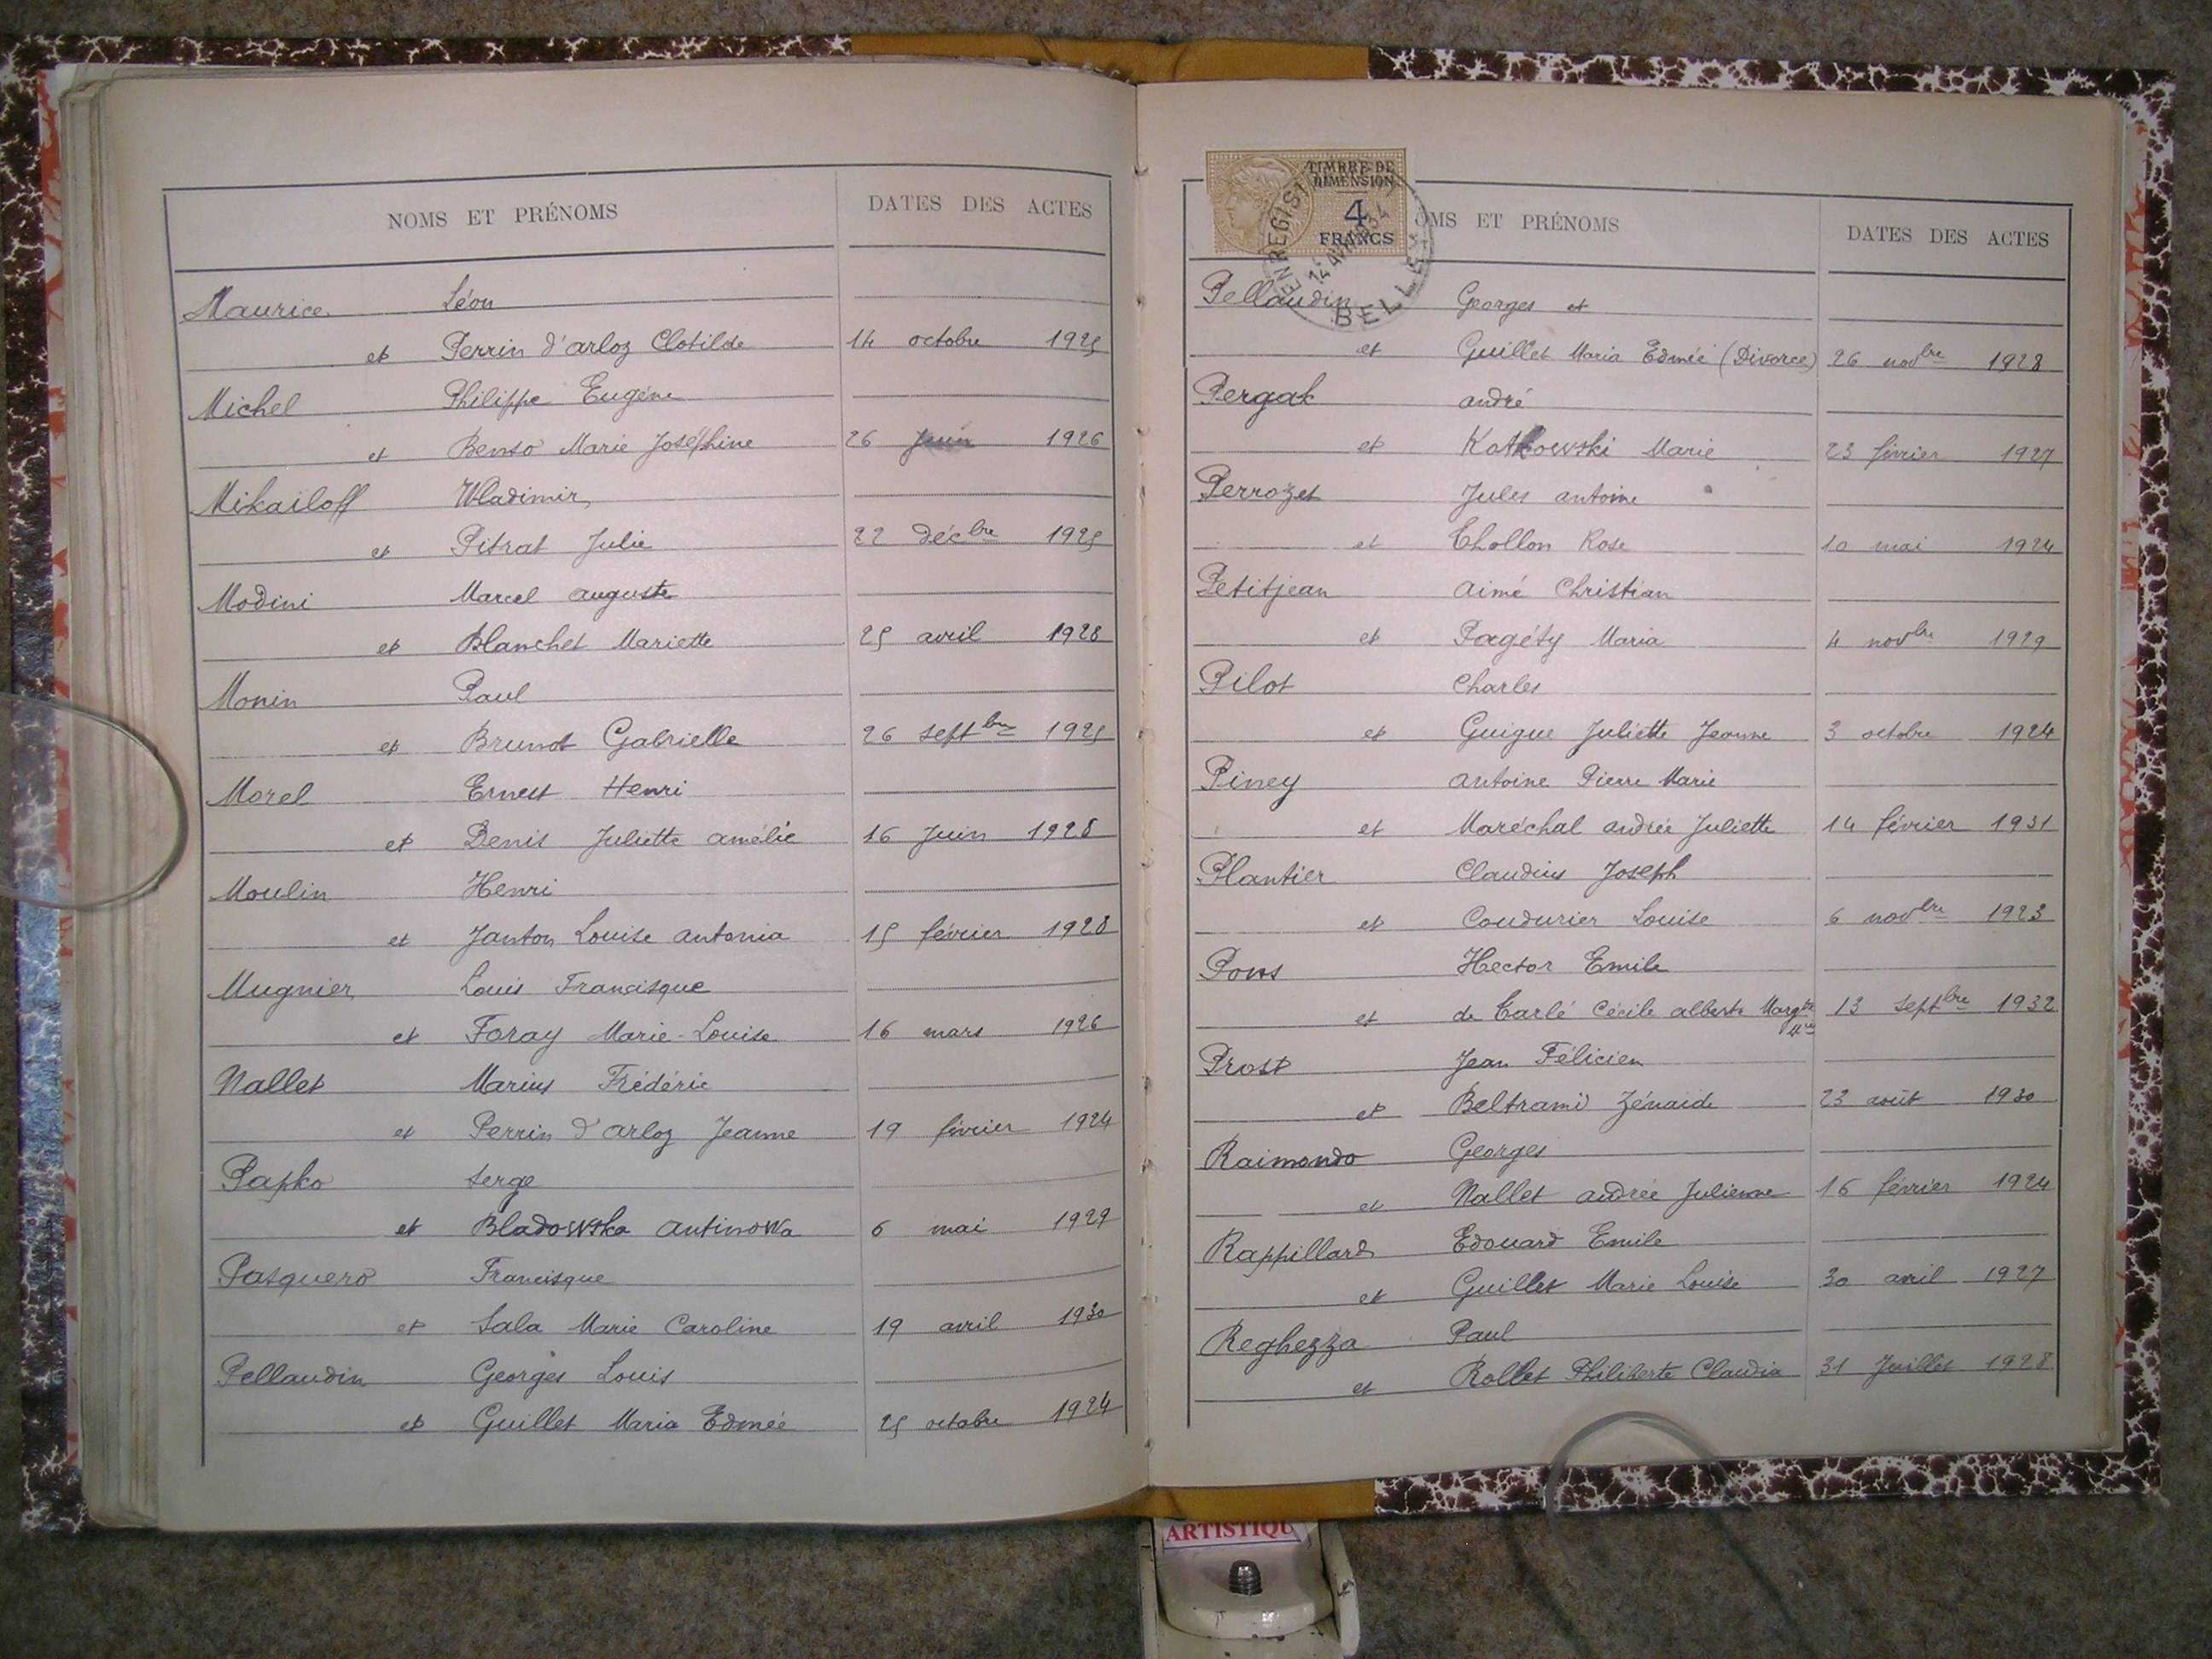 NOMS ET PRÉNOMS DATES DES ACTES
Maurice Léon
et Perrin d'arloz Clotilde 14 octobre 1925
Michel Philippe Eugène
et Benso Marie Joséphine 26 Juin 1926
Mikaïloff Wladimir
et Pitrat Julie 22 décbre 1925
Modini Marcel auguste
et Blanchet Mariette 25 avril 1928
Monin Paul
et Brunot Gabrielle 26 septbre 1925
Morel Ernest Henri
et Denis Juliette amélie 16 Juin 1928
Moulin Henri
et Janton Louise antonia 15 février 1928
Mugnier Louis Francisque
et Foray Marie-Louise 16 mars 1926
Nallet Marius Frédéric
et Perrin d'arloz Jeanne 19 février 1924
Papko Serge
et Bladowska antinowa 6 mai 1929
Pasquero Francisque
et Sala Marie Caroline 19 avril 1930
Pellaudin Georges Louis
et Guillet Maria Edmée 25 octobre 1924
TIMBRE DE
DIMENSION
4
FRANCS
ENREGIST
BELLEY
OMS ET PRÉNOMS DATES DES ACTES
Pellaudin Georges et
et Guillet Maria Edmée (Divorce) 26 novbre 1928
Pergak andré
et Kotkowski Marie 23 février 1927
Perrozet Jules antoine
et Chollon Rose 10 mai 1924
Petitjean aimé Christian
et Pagéty Maria 4 novbre 1929
Pilot Charles
et Guigue Juliette Jeanne 3 octobre 1924
Piney antoine Pierre Marie
et Maréchal andrée Juliette 14 février 1931
Plantier Claudius Joseph
et Coudurier Louise 6 novbre 1923
Pons Hector Emile
et de Carlé Cécile alberte Margte Mie 13 septbre 1932
Prost Jean Félicien
et Beltrami Zénaide 23 août 1930
Raimondo Georges
et Nallet andrée Julienne 16 février 1924
Rappillard Edouard Emile
et Guillet Marie Louise 30 avril 1927
Reghezza Paul
et Rollet Philiberte Claudia 31 Juillet 1928
ARTISTIQU